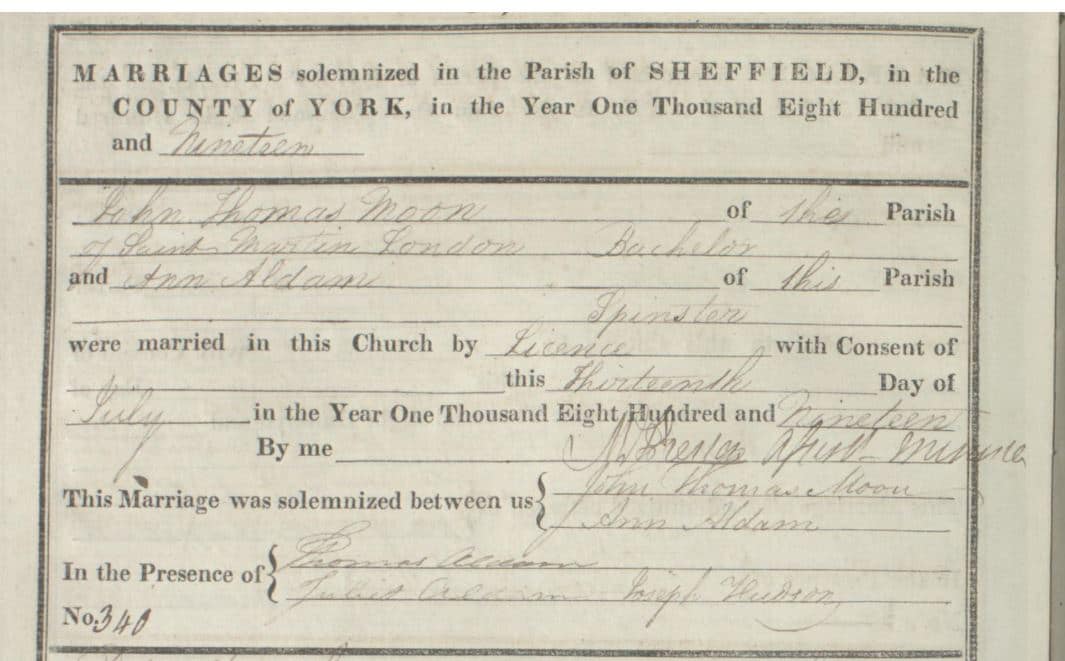 MARRIAGES solemnized in the Parish of SHEFFIELD, in the
COUNTY of YORK, in the Year One Thousand Eight Hundred
and Nineteen
John Thomas Moon of this Parish
of Saint Martin London Bachelor
and Ann Aldam of this Parish
Spinster
were married in this Church by Licence with Consent of
this Thirteenth Day of
July in the Year One Thousand Eight Hundred and Nineteen
By me
This Marriage was solemnized between us { John Thomas Moon
Ann Aldam
In the Presence of { Thomas Aldam
Aldam Joseph Hudson
No. 340